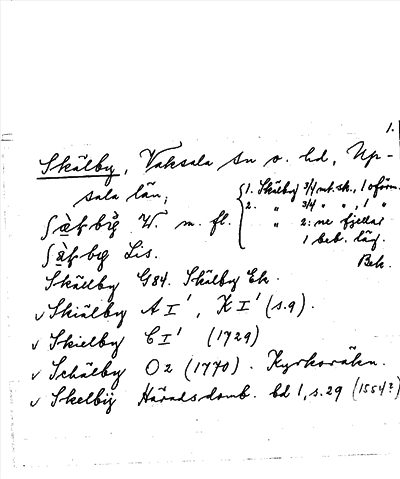 1.
Skälby, Vaksala sn o. hd, Up-
sala län;
{1. Skälby 3/4 mt. sk., 1 oförm.
2. " 3/4 " " , 1 "
" 2:ne fjellar
1 beb. läg.
Bek.
W. m. fl.
Lis.
Skälby G84. Skälby Ek.
v Skiälby A I', K I' (s.9).
v Skielby C I' (1729)
v Schälby O2 (1770). Kyrkoräkn.
v Skelbÿ Häradsdomb. bd 1, s. 29 (1554?)